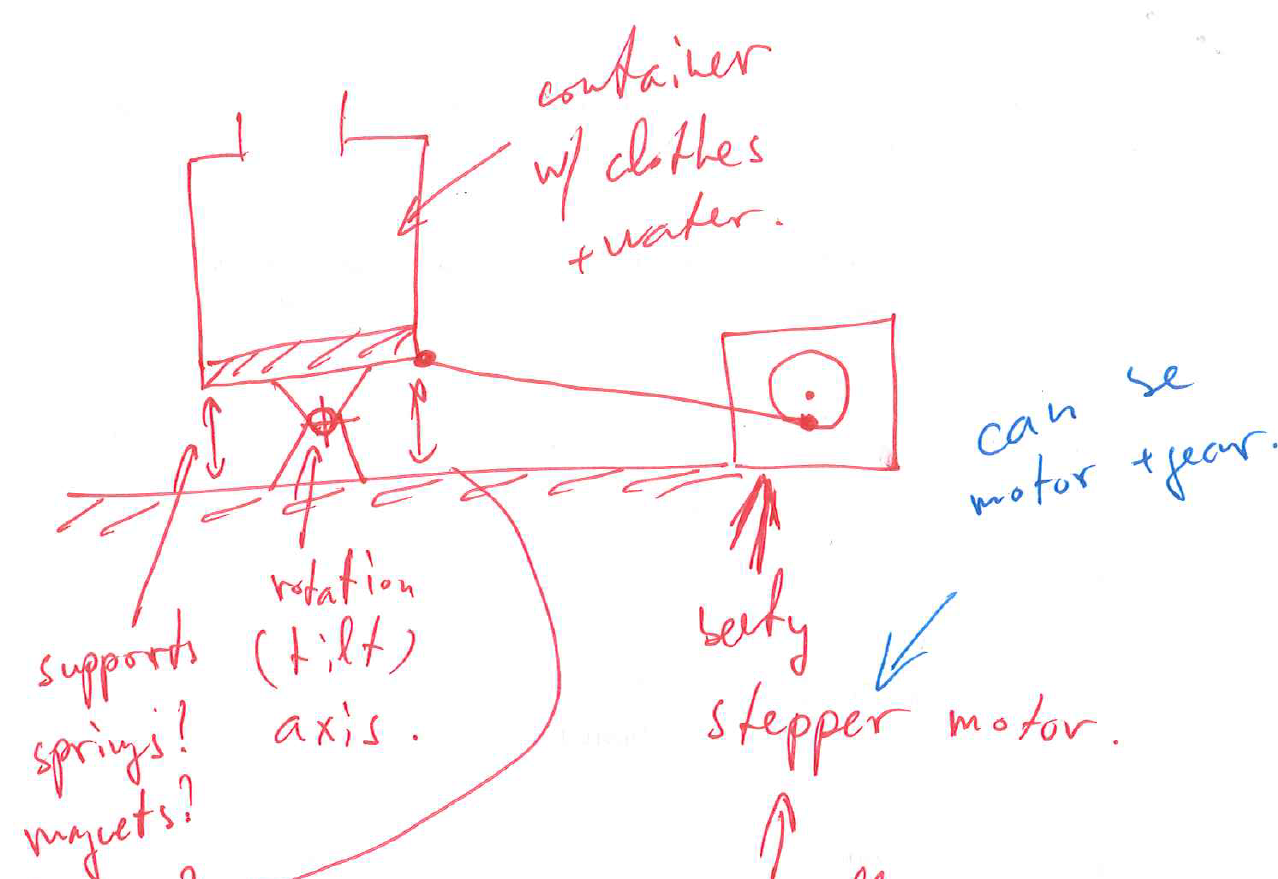 container
w/ clothes
+ water.
can be
motor + gear.
rotation
(tilt)
axis.
supports
springs?
magnets?
beefy
stepper motor.